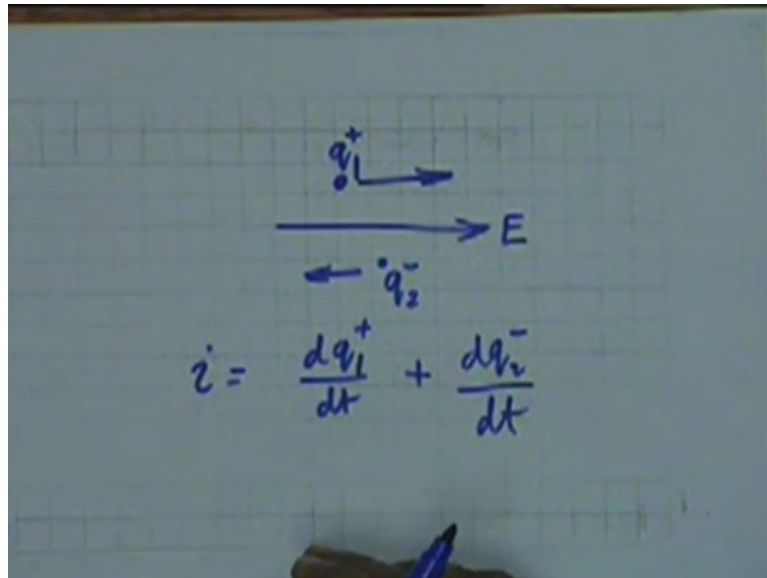 q₁⁺
E
q₂⁻
i = dq₁⁺/dt + dq₂⁻/dt